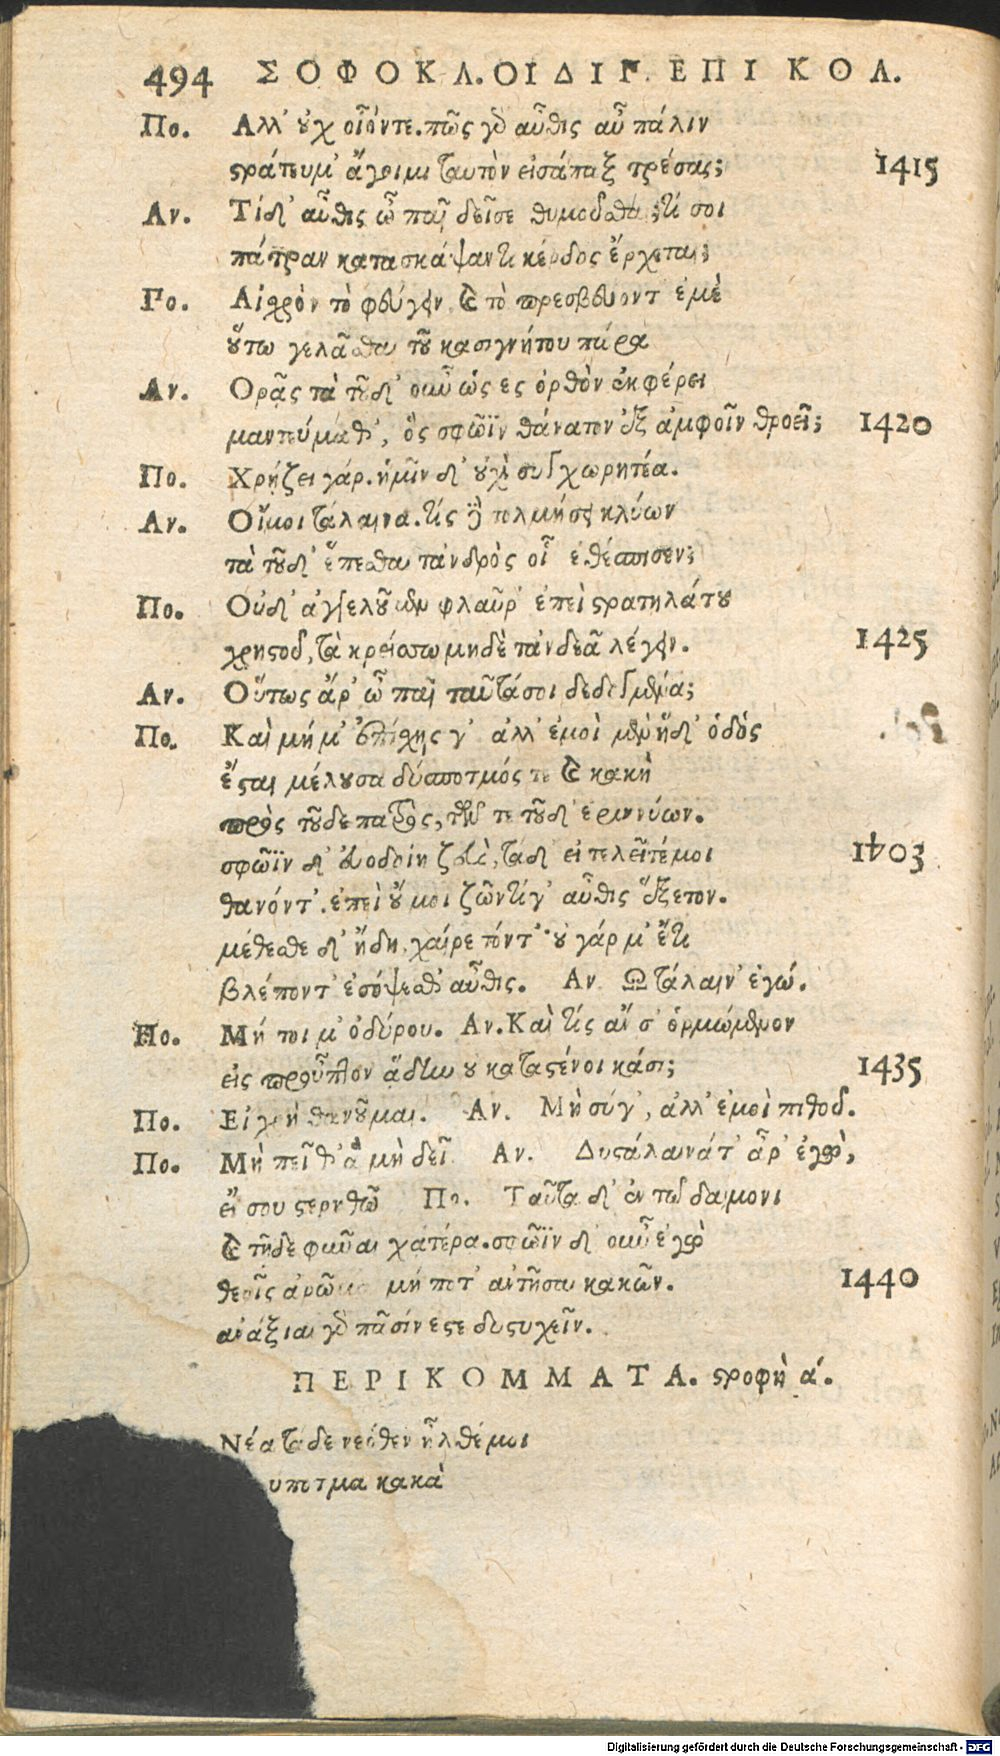 494 ΣΟΦΟΚΛ. ΟΙΔΙΠ. ΕΠΙ ΚΟΛ.
Πο. Αλλ' οὐχ οἷόντε. πῶς γὸ αὖθις αὖ πάλιν
στράτευμ' ἄγοιμι ταυτὸν εἰσάπαξ τρέσας; 1415
Αν. Τί δ' αὖθις ὦ παῖ δεῖσε θυμοῦσθαι; τί σοι
πάτραν κατασκάψαντι κέρδος ἔρχεται;
Πο. Αἰσχρὸν τὸ φεύγειν, καὶ τὸ πρεσβεύοντ' ἐμὲ
οὕτω γελᾶσθαι τοῦ κασιγνήτου πάρα
Αν. Ορᾷς τὰ τοῦδ' οὖν ὡς ες ὀρθὸν ἐκφέρει
μαντεύμαθ', ὃς σφῶϊν θάνατον ἐξ ἀμφοῖν θροεῖ; 1420
Πο. Χρῄζει γάρ. ἡμῖν δ' οὐχὶ συγχωρητέα.
Αν. Οἴμοι τάλαινα. τίς δὲ τολμήσει κλύων
τὰ τοῦδ' ἕπεσθαι τἀνδρὸς οἷ' ἐθέσπισεν;
Πο. Οὐδ' ἀγγελοῦμεν φλαῦρ' ἐπεὶ στρατηλάτου
χρηστοῦ, τὰ κρείσσω μηδὲ τἀνδεᾶ λέγειν. 1425
Αν. Οὕτως ἄρ' ὦ παῖ ταῦτά σοι δεδογμένα;
Πο. Καὶ μή μ' ἐπίσχῃς γ' ἀλλ' ἐμοὶ μὲν ἥδ' ὁδὸς
ἔσται μέλουσα δύσποτμός τε καὶ κακὴ
πρὸς τοῦδε πατρὸς, τῶν τε τοῦδ' ἐριννύων.
σφῶϊν δ' εὐοδοίη ζεὺς, τάδ' εἰ τελεῖτέ μοι 1403
θανόντ'. ἐπεὶ οὔ μοι ζῶντί γ' αὖθις ἕξετον.
μέθεσθε δ' ἤδη, χαίρετόντ'· οὐ γάρ μ' ἔτι
βλέποντ' ἐσόψεσθ' αὖθις. Αν. Ω τάλαιν' ἐγώ.
Πο. Μή τοι μ' ὀδύρου. Αν. Καὶ τίς ἄν σ' ὁρμώμενον
εἰς προὖπτον ᾅδην οὐ καταστένοι κάσι; 1435
Πο. Εἰ χρὴ θανοῦμαι. Αν. Μὴ σύγ', ἀλλ' ἐμοὶ πιθοῦ.
Πο. Μὴ πεῖθ' ἃ μὴ δεῖ Αν. Δυστάλαινά τ' ἆρ' ἐγὼ,
εἴ σου στερηθῶ Πο. Ταῦτα δ' ἐν τῷ δαίμονι
καὶ τῇδε φῦναι χἀτέρᾳ. σφῶϊν δ' οὖν ἐγὼ
θεοῖς ἀρῶμαι μή ποτ' ἀντῆσαι κακῶν. 1440
ἀνάξιαι γὸ πᾶσίν ἐστε δυστυχεῖν.
ΠΕΡΙΚΟΜΜΑΤΑ. στροφὴ ά.
Νέα τάδε νεόθεν ἦλθέ μοι
υποτμα κακὰ
Digitalisierung gefördert durch die Deutsche Forschungsgemeinschaft - DFG